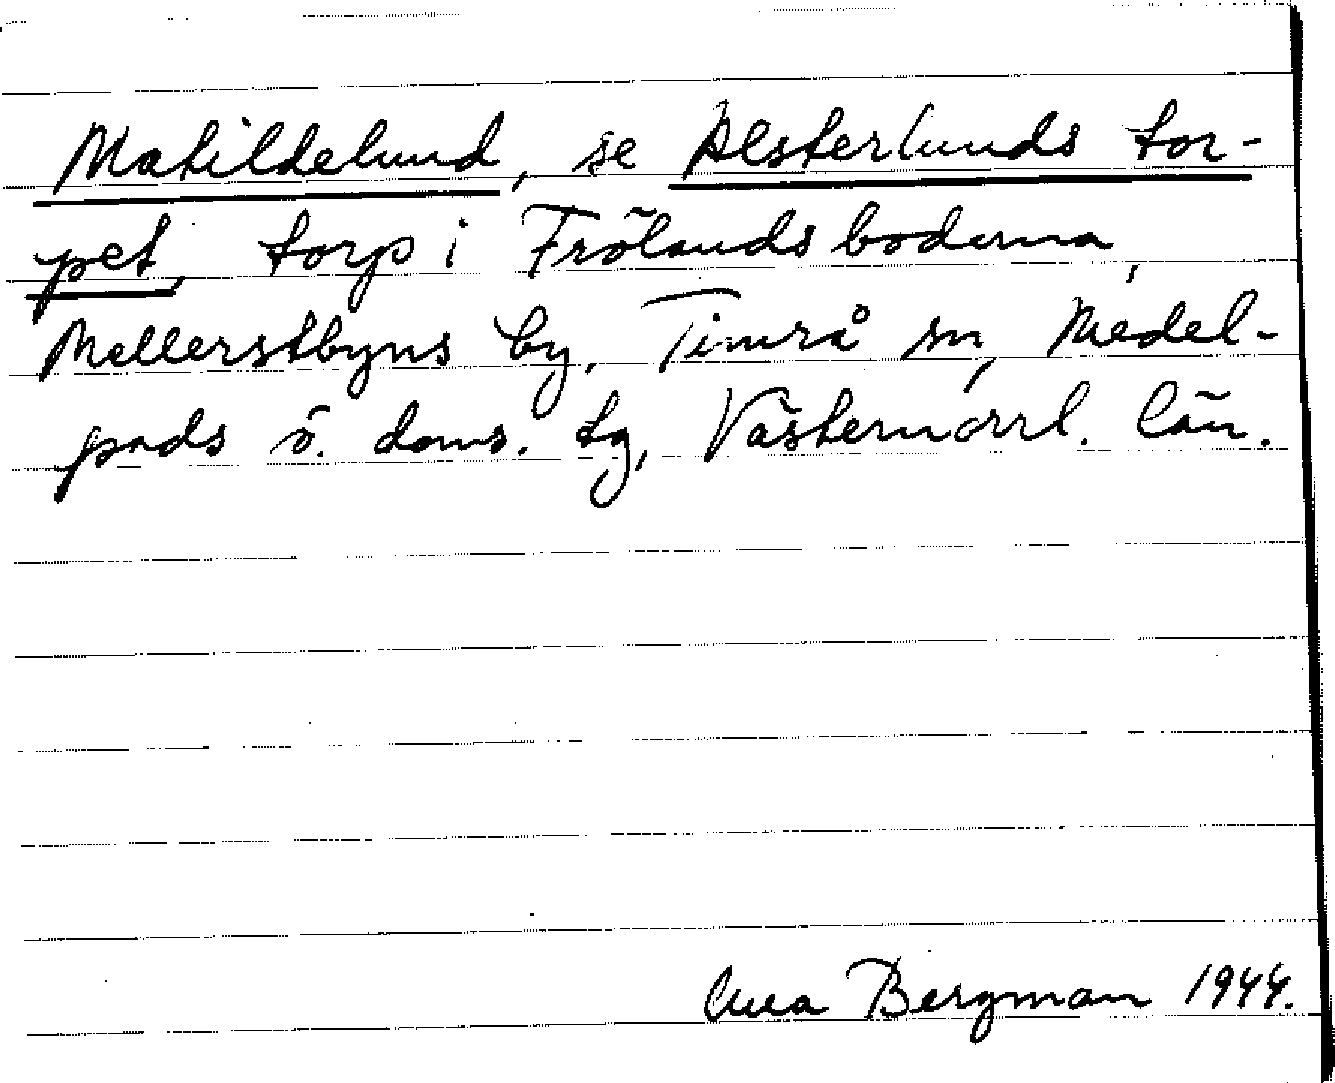 Matildelund, se Alsterlunds tor-
pet, torp i Frölandsbodarna,
Mellerstbyns by, Timrå sn, Medel-
pads ö. doms. tg, Västernorrl. län.
Anna Bergman 1944.